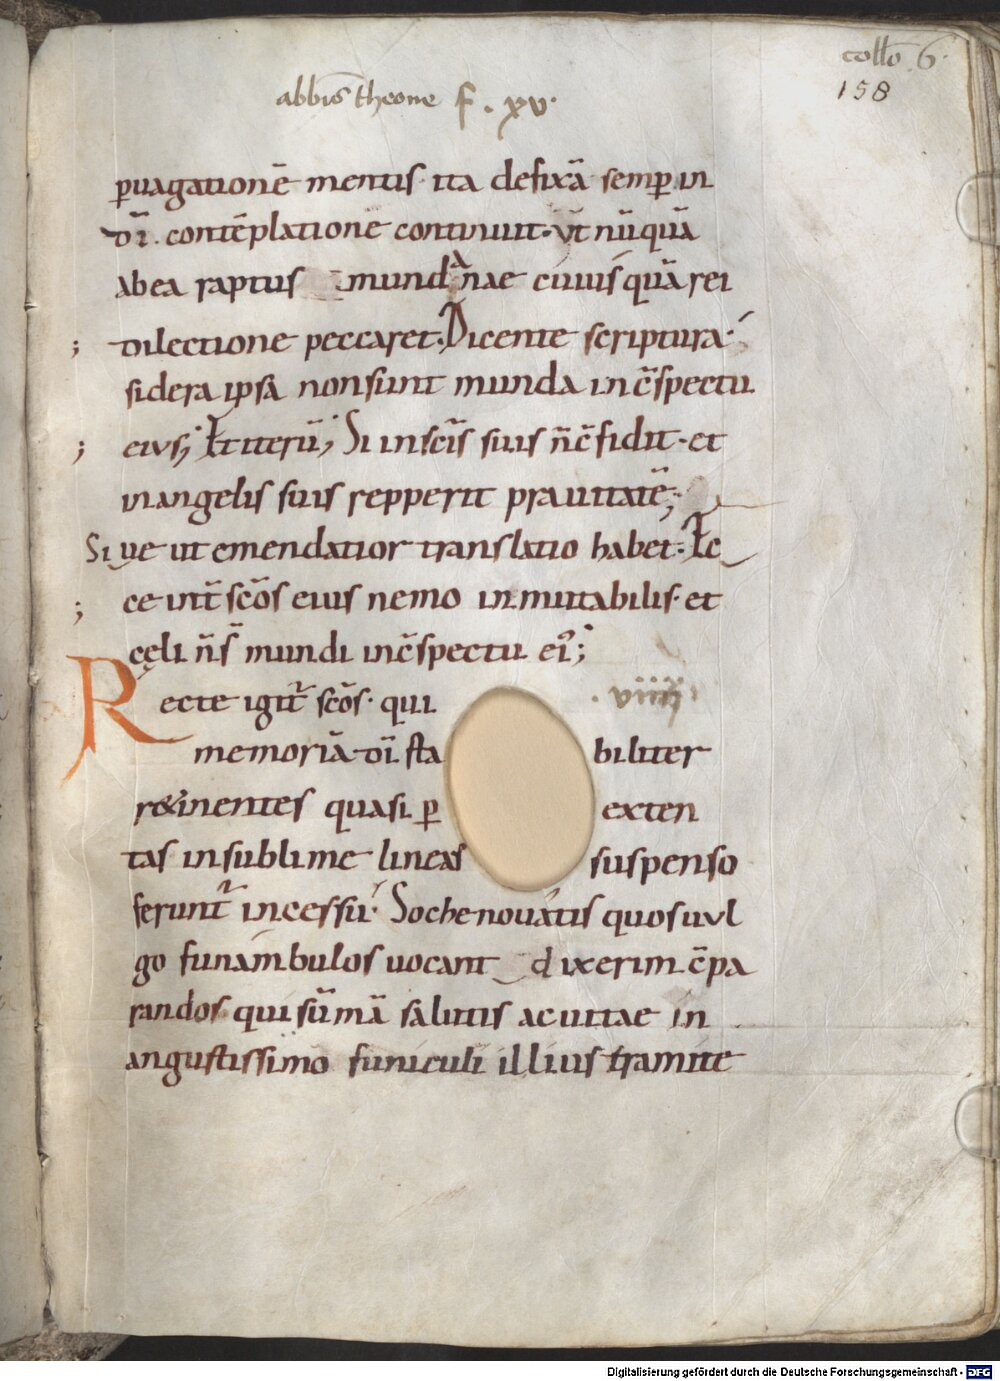 collo̅ 6.
158
abbis̅ theone f. xv.
ꝑuagatione̅ mentis ita defixa̅ semꝑ in
di̅. conte̅platione continuit. vt̅ nu̅qua̅
ab ea raptus mundanae cuiusqua̅ rei
; dilectione peccaret. Dicente scriptura.
sidera ipsa non sunt munda in c̅spectu
; eius; Et iteru̅; Si in sc̅is suis n̅ c̅fidit. et
in angelis suis repperit prauitate̅;
Siue ut emendatior translatio habet. Ec
; ce int̅ sc̅os eius nemo inmutabilis. et
cęli n̅s̅ mundi in c̅spectu ei᷒;
Recte igit̅ sc̅os. qui viiii.
memoria̅ di̅ sta biliter
r&inentes quasi ꝑ exten
tas in sublime lineas suspenso
ferunt̅ incessu. Sochenouatis quos uul
go funambulos uocant dixerim c̅pa
randos qui su̅ma̅ salutis ac uitae in
angustissimo funiculi illius tramite
Digitalisierung gefördert durch die Deutsche Forschungsgemeinschaft - DFG